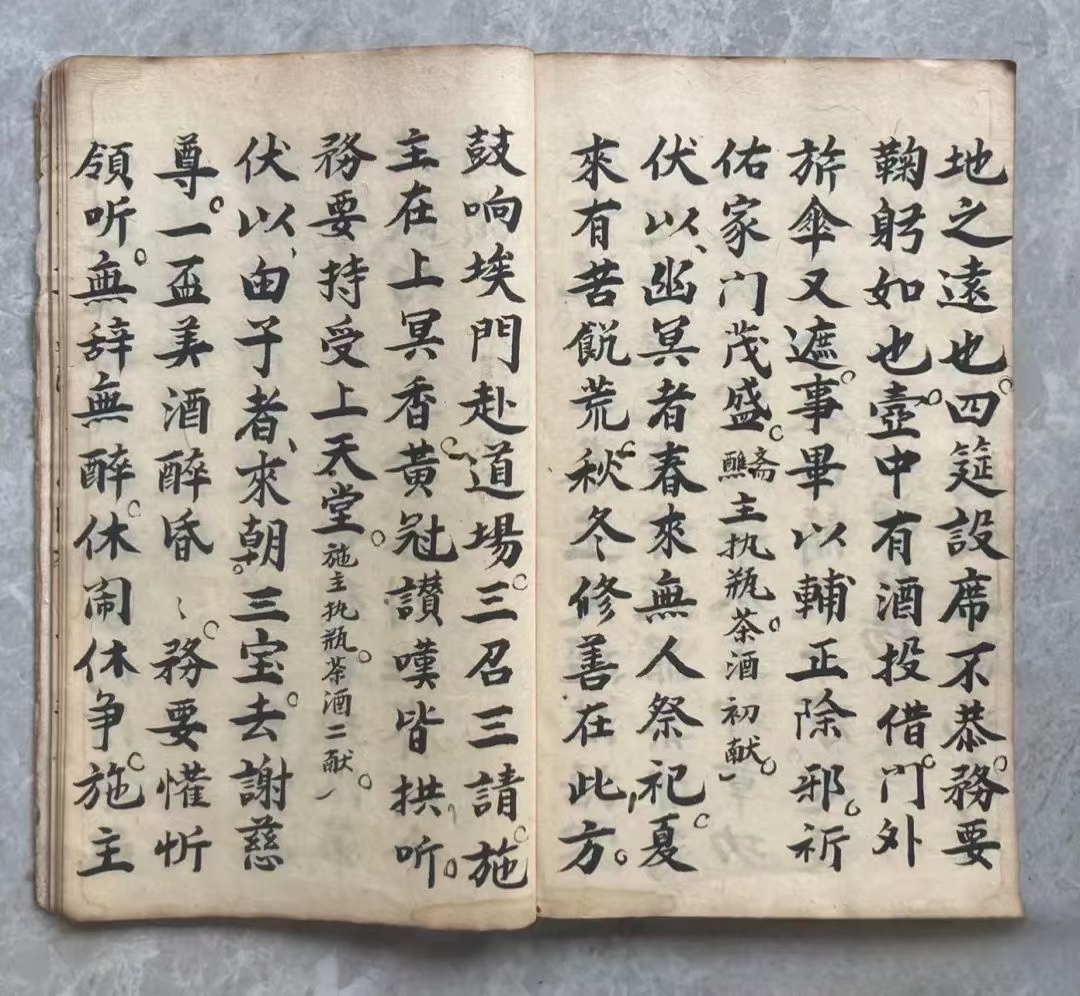 地之遠也。四筵設席不恭。務要
鞠躬如也。壺中有酒投借。门外
旂傘又遮。事畢以輔正除邪。祈
佑家门茂盛。齋醮主执瓶茶。酒初献。
伏以、幽冥者春來無人祭祀。夏
來有苦飢荒。秋冬修善在此方。
鼓响埃門赴道場。三召三請。施
主在上冥香。黃冠讃嘆皆拱听。
務要持受上天堂。施主执瓶。茶酒二献。
伏以、由子者、來朝。三宝。去謝慈
尊。一盃美酒醉昏〻。務要懽忻
領听。無辞無醉。休闹休争。施主